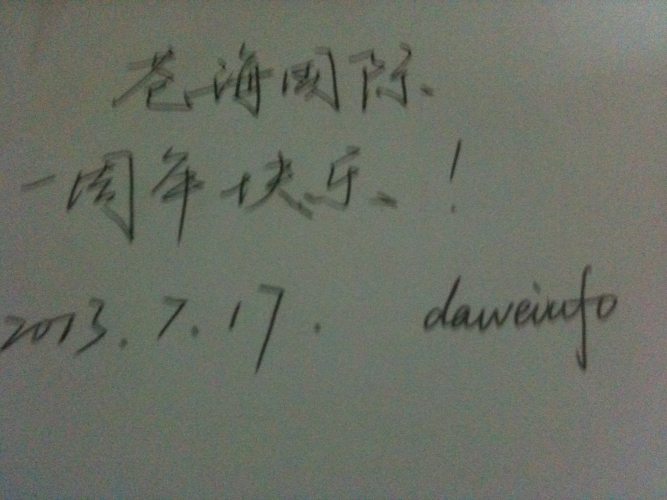 苍海国际
一周年快乐！
2013.7.17. daweinfo